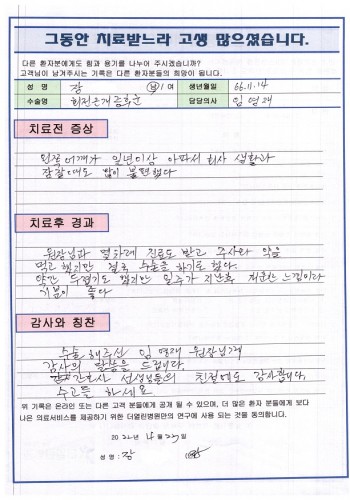 그동안 치료받느라 고생 많으셨습니다.
다른 환자분에게도 힘과 용기를 나누어 주시겠습니까?
고객님이 남겨주시는 기록은 다른 환자분들의 희망이 됩니다.
성 명 장 남/여 생년월일 66.11.14
수술명 회전근개증후군 담당의사 임영재
치료전 증상
왼쪽어깨가 일년이상 아파서 회사 생활과
잠잘때도 많이 불편했다
치료후 경과
원장님과 열차례 진료도 받고 주사와 약을
먹고 했지만 결국 수술을 하기로 했다.
약간 두렵기도 했지만 일주가 지난후 개운한 느낌이라
기분이 좋다
감사와 칭찬
수술해주신 임영재 원장님께
감사의 말씀을 드립니다.
간호사 선생님들의 친절에도 감사합니다.
수고들 하세요
위 기록은 온라인 또는 다른 고객 분들에게 공개 될 수 있으며, 더 많은 환자 분들에게 보다
나은 의료서비스를 제공하기 위한 더열린병원만의 연구에 사용 되는 것을 동의합니다.
2022년 4월 29일
성명: 장